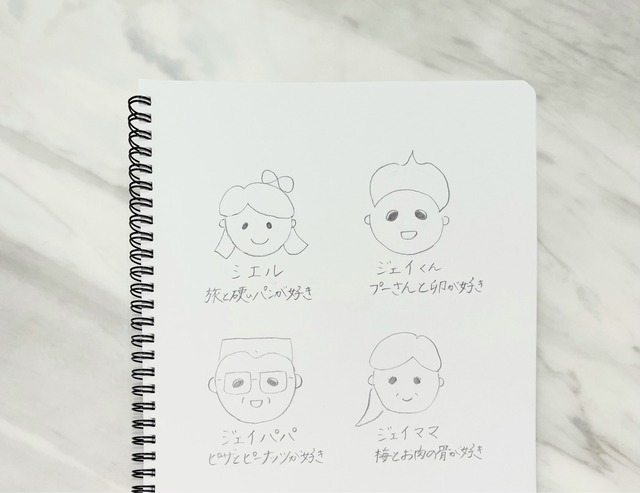 シエル
旅と硬いパンが好き
ジェイくん
プーさんと卵が好き
ジェイパパ
ピザとピーナッツが好き
ジェイママ
梅とお肉の骨が好き